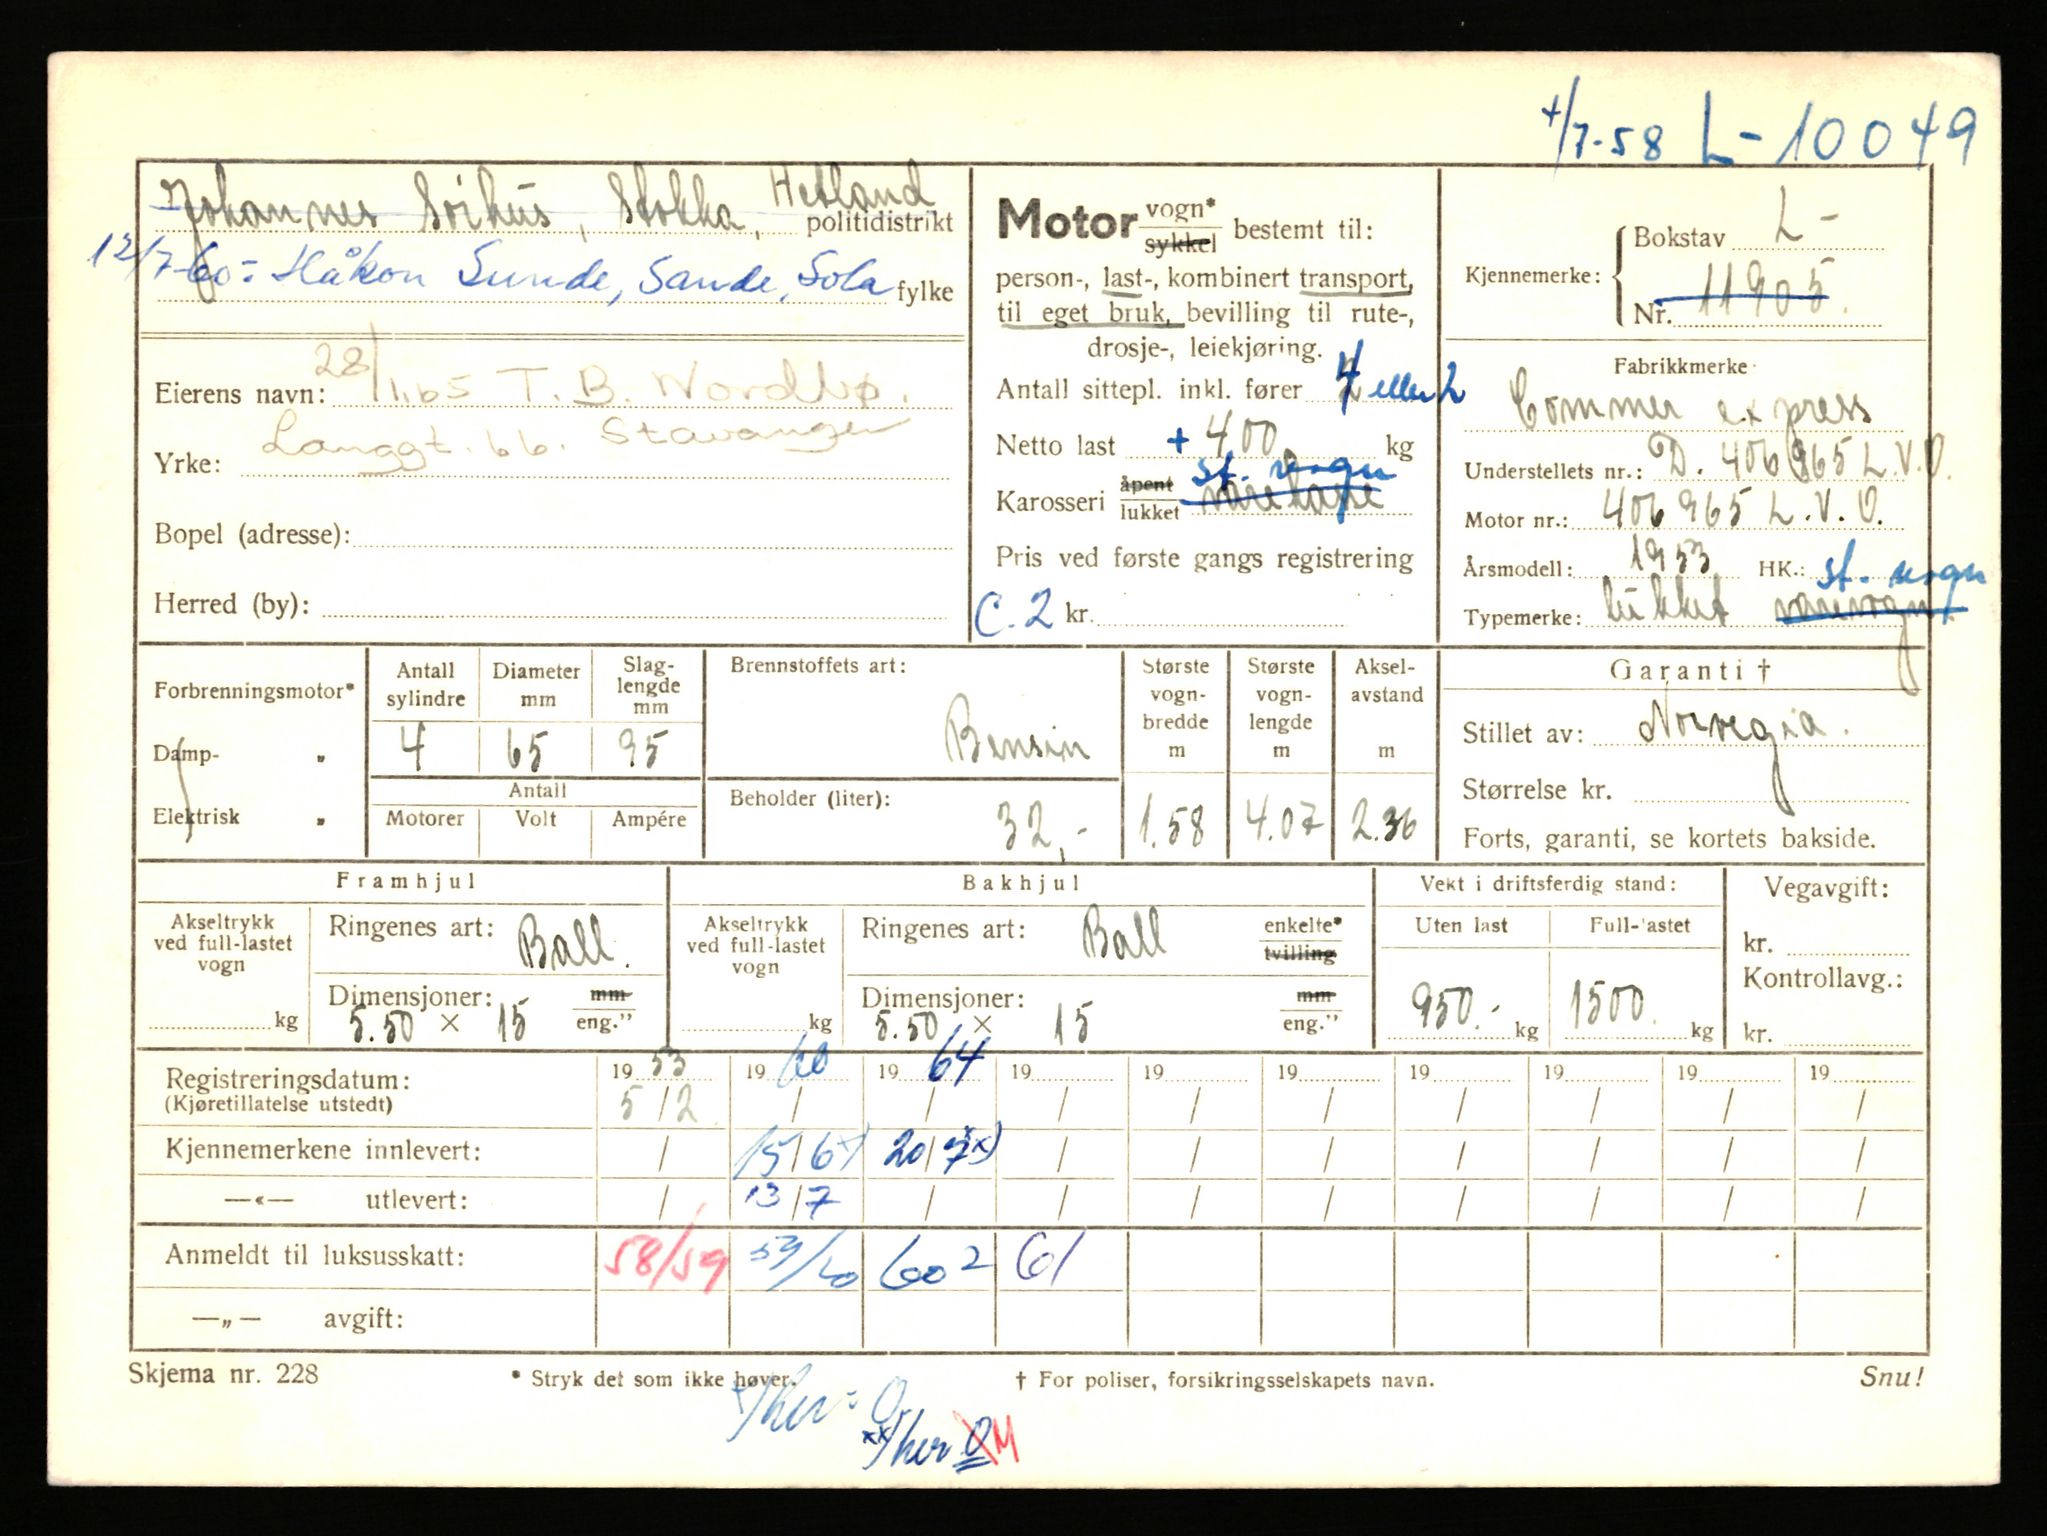 +/7-58 L-10049
Johannes Sørhus, Stokka, Hetland politidistrikt
12/7-60: Håkon Sunde, Sande, Sola fylke
Eierens navn: 28/1.65 T. B. Nordbø.
Yrke: Langgt. 66. Stavanger
Bopel (adresse):
Herred (by):
Motor vogn* sykkel bestemt til:
person-, last-, kombinert transport,
til eget bruk, bevilling til rute-,
drosje-, leiekjøring.
Antall sittepl. inkl. fører 4 eller 2
Netto last + 400 kg
Karosseri åpent lukket varekasse st. vogn
Pris ved første gangs registrering
C.2 kr.
Kjennemerke: Bokstav L-
Nr. 11905.
Fabrikkmerke
Commer express
Understellets nr.: D. 406965 L.V.O.
Motor nr.: 406965 L.V.O.
Årsmodell: 1953 HK.: st. vogn
Typemerke: lukket varevogn
Forbrenningsmotor*
Damp- „
Elektrisk „
Antall sylindre
4
Diameter mm
65
Slaglengde mm
95
Antall
Motorer Volt Ampére
Brennstoffets art:
Bensin
Beholder (liter):
32,-
Største vognbredde m
1.58
Største vognlengde m
4.07
Akselavstand m
2.36
Garanti †
Stillet av: Norvegia.
Størrelse kr.
Forts, garanti, se kortets bakside.
Framhjul
Akseltrykk ved full-lastet vogn
kg
Ringenes art: Ball.
Dimensjoner: mm
5.50 × 15 eng.”
Bakhjul
Akseltrykk ved full-lastet vogn
kg
Ringenes art: Ball enkelte* tvilling
Dimensjoner: mm
5.50 × 15 eng.”
Vekt i driftsferdig stand:
Uten last
950.- kg
Full-lastet
1500. kg
Vegavgift:
kr.
Kontrollavg.:
kr.
Registreringsdatum: 19 53 19 60 19 64 19 19 19 19 19 19 19
(Kjøretillatelse utstedt) 5/2 / / / / / / / / /
Kjennemerkene innlevert: / 15/6 x) 20/7 xx) / / / / / / /
—«— utlevert: / 13/7 / / / / / / / /
Anmeldt til luksusskatt: 58/59 59/60 60 2 61
—„— avgift:
Skjema nr. 228
* Stryk det som ikke høver.
† For poliser, forsikringsselskapets navn.
Snu!
x/her: O.
xx/her O M